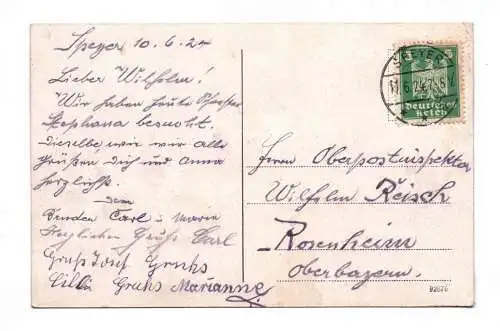 Speyer 10.6.24
Lieber Wilhelm!
Wir haben heute
Stephana besucht.
Dieselbe, wie wir alle
grüßen Dich und Anna
herzlichst
Carl u. Marie
Herzlichen Gruß Carl
Gruß Josef Gruß
Cilli Gruß Marianne
SPEYER
Deutsches
Reich
Herrn Oberpostinspektor
Wilhelm Reisch
Rosenheim
Oberbayern.
B2676